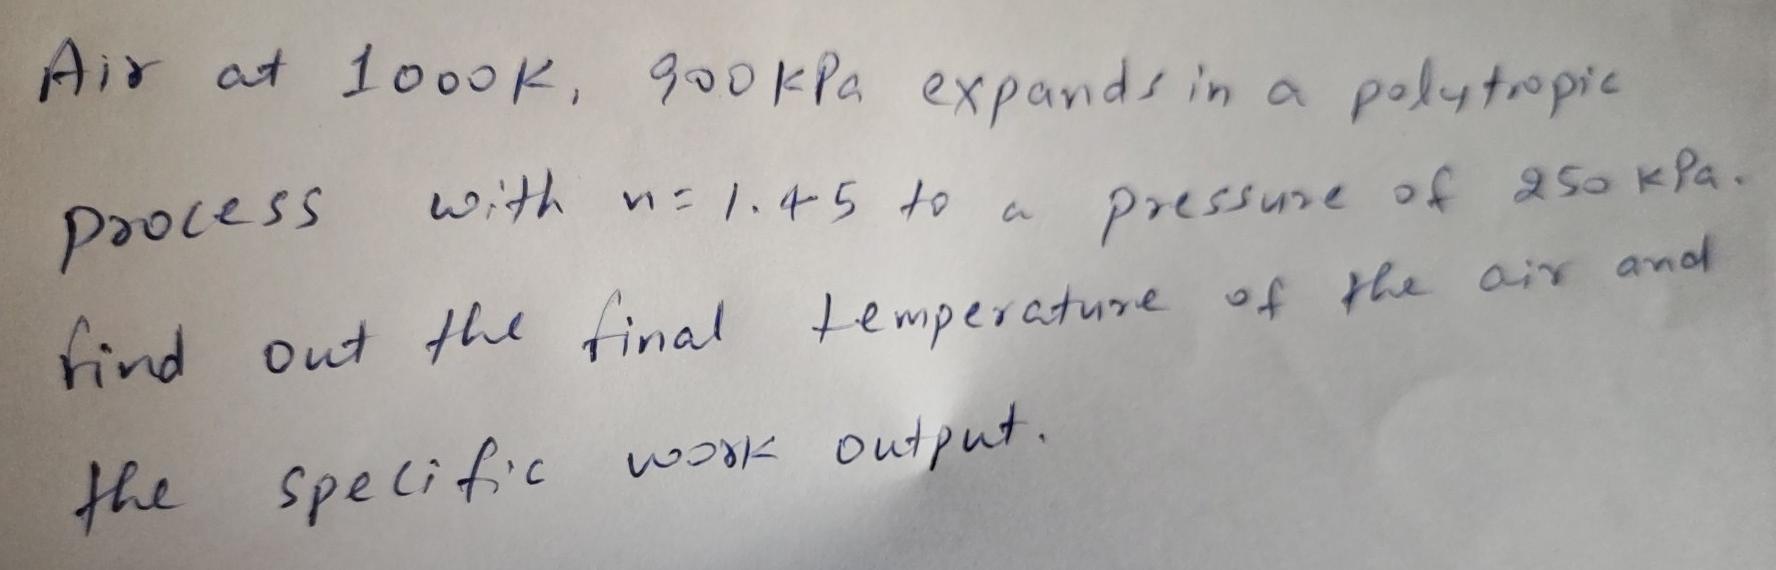 Air at 1000K, 900kPa expands in a polytropic
process with n=1.45 to a pressure of 250 kPa.
find out the final temperature of the air and
the specific work output.